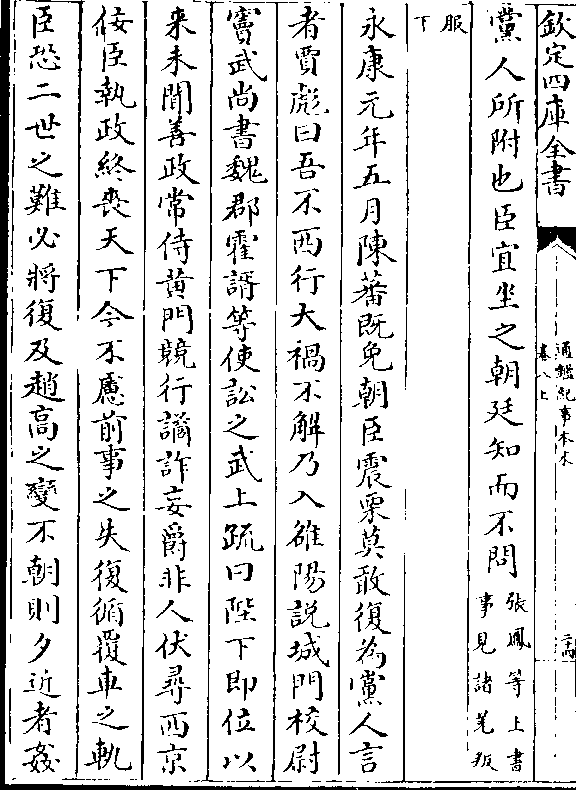 欽定四庫全書
通鑑紀事本末
卷八上
二十四
黨人所附也臣宜坐之朝廷知而不問張鳳等上書事見諸羌叛
服下
永康元年五月陳蕃既免朝臣震栗莫敢復為黨人言
者賈彪曰吾不西行大禍不解乃入雒陽説城門校尉
竇武尚書魏郡霍諝等使訟之武上疏曰陛下即位以
来未聞善政常侍黄門競行譎詐妄爵非人伏尋西京
佞臣執政終喪天下今不慮前事之失復循覆車之軌
臣恐二世之難必將復及趙高之變不朝則夕近者姦